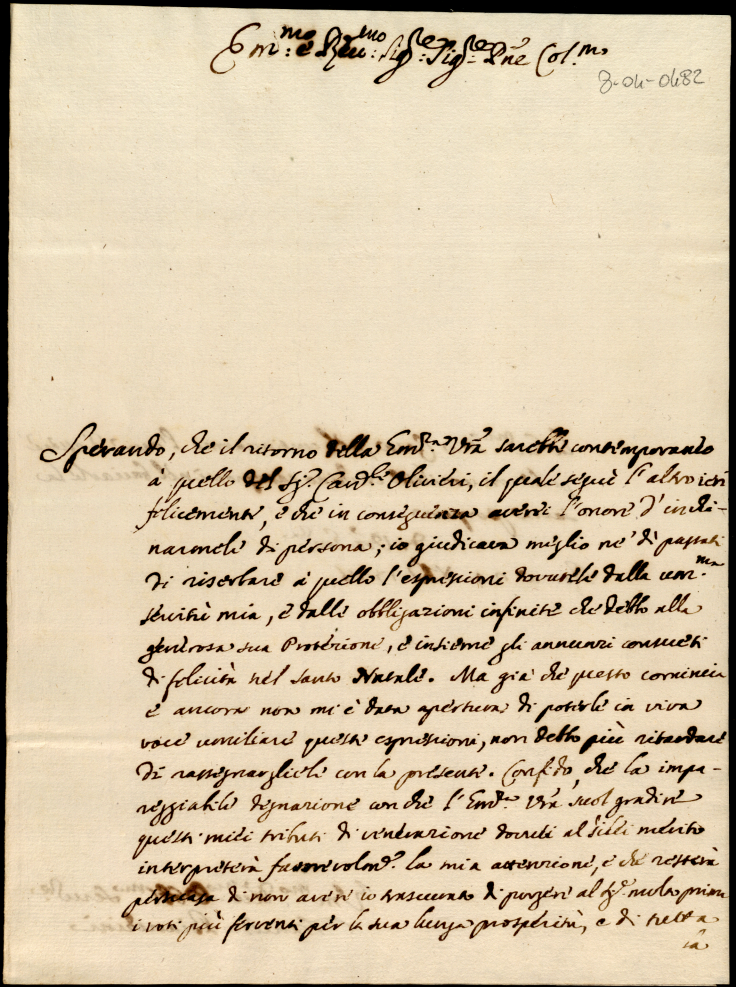 Em:mo e Rev:mo Sig:re Sig:re Pne Col.mo
8-04-0482
Sperando, che il ritorno della Em:za Vra sarebbe contemporaneo
à quello del Sig.r Card.le Olivieri, il quale seguì l'altro ieri
felicemente, e che in conseguenza averei l'onore d'inchi-
narmele di persona; io giudicava meglio ne' dì passati
di riserbare à quello l'espressioni dovutele dalla um.ma
servitù mia, e dalle obbligazioni infinite che debbo alla
generosa sua Protezione, e insieme gli annunzi consueti
di felicità nel Santo Natale. Ma già che questo comincia
e ancora non mi è data apertura di poterle in viva
voce umiliare queste espressioni, non debbo più ritardare
di rassegnargliele con la presente. Confido, che la impa-
reggiabile degnazione con che l'Em:za Vra suol gradire
questi miei tributi di venerazione dovuti al merito
interpreterà favorevolm.te la mia attenzione, e che resterà
persuasa di non avere io trascurato di porgere al Sig.re molto prima
i voti più ferventi per la sua lunga prosperità, e di tutta
la